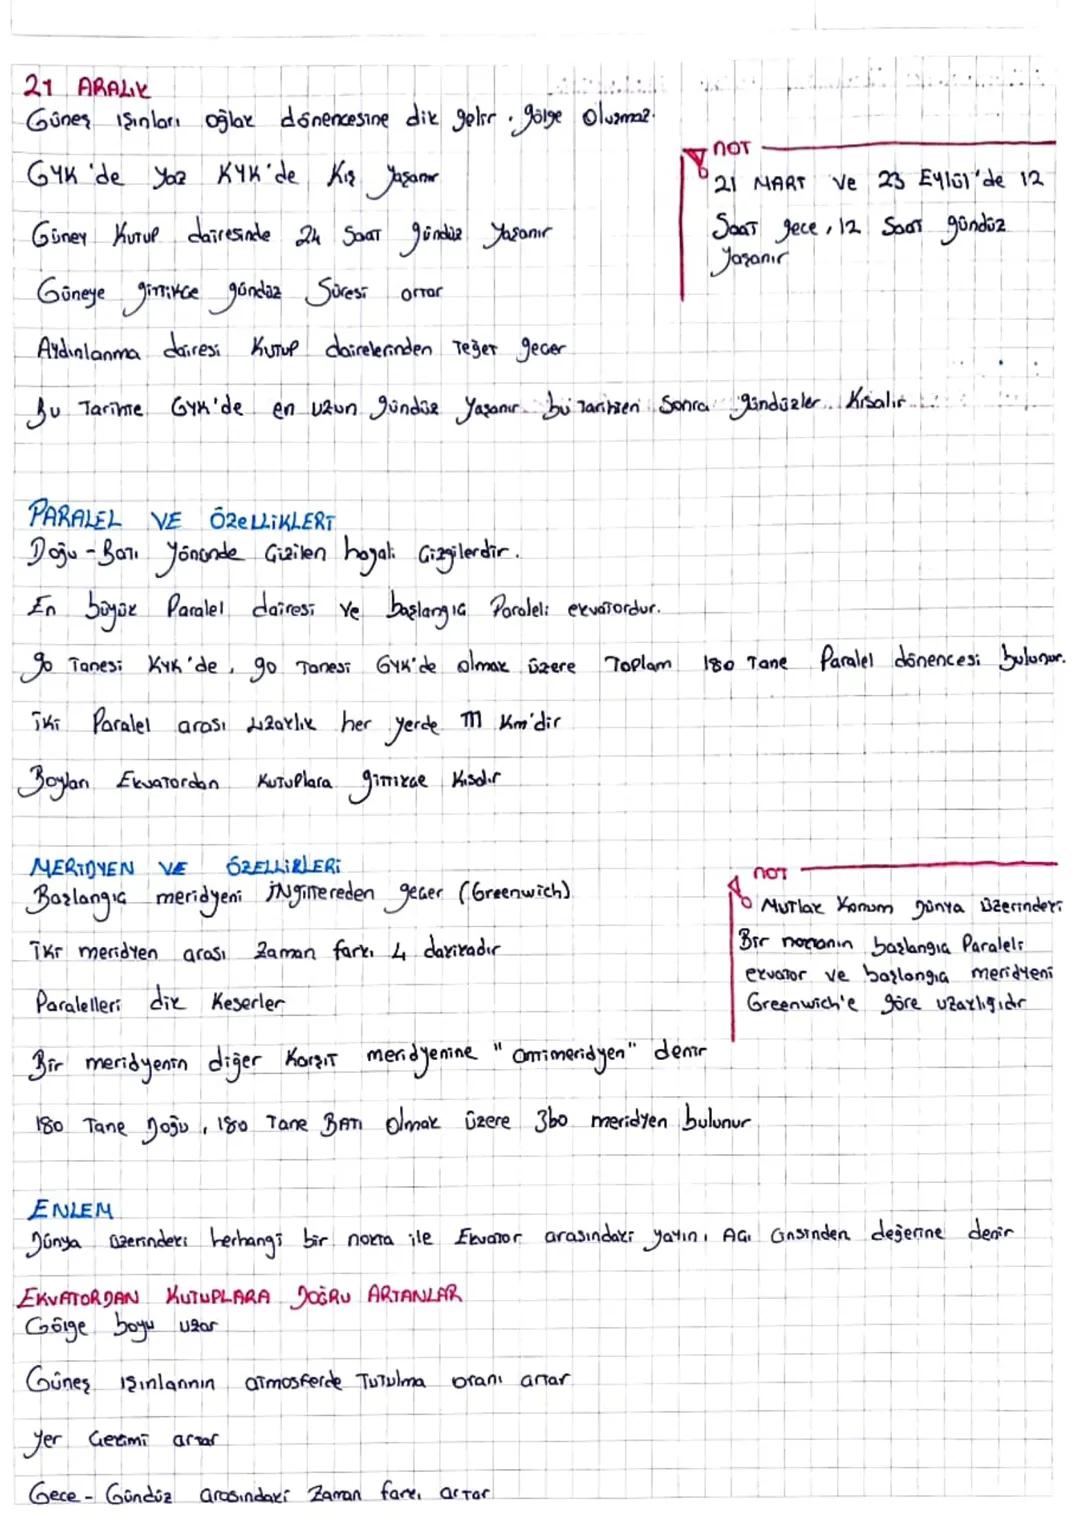 21 ARALIK
Güneş ışınları oğlak dönencesine dik gelir. gölge oluşmaz.
GYK'de yaz KYK'de Kış yaşanır
Güney Kutup dairesinde 24 saat gündüz yaşanır
Güneye gittikçe gündüz süresi artar
Aydınlanma dairesi Kutup dairelerinden teğet geçer
Bu Tarihte GYK'de en uzun gündüz yaşanır. bu tarihten sonra gündüzler Kısalır
NOT
21 MART ve 23 Eylül'de 12
Saat gece, 12 Saat gündüz
yaşanır
PARALEL VE ÖZELLİKLERİ
Doğu-Batı yönünde Çizilen hayali Çizgilerdir.
En büyük Paralel dairesi ve başlangıç Paraleli ekvatordur.
90 Tanesi KYK'de, 90 Tanesi GYK'de olmak üzere Toplam 180 Tane Paralel dönencesi bulunur.
İki Paralel arası uzaklık her yerde 111 Km'dir
Boyları Ekvatordan Kutuplara gittikçe Kısalır
MERİDYEN VE ÖZELLİKLERİ
Başlangıç meridyeni İngiltereden geçer (Greenwich)
İki meridyen arası Zaman farkı 4 dakikadır
Paralelleri dik Keserler
Bir meridyenin diğer Karşıt meridyenine "antimeridyen" denir
180 Tane Doğu, 180 Tane BATI olmak üzere 360 meridyen bulunur
NOT
Mutlak Konum Dünya üzerindeki
Bir noktanın başlangıç Paraleli
ekvator ve başlangıç meridyeni
Greenwich'e göre uzaklığıdır
ENLEM
Dünya üzerindeki herhangi bir nokta ile Ekvator arasındaki yayın, Açı Cinsinden değerine denir
EKVATORDAN KUTUPLARA DOĞRU ARTANLAR
Gölge boyu uzar
Güneş ışınlarının atmosferde Tutulma oranı artar
Yer Çekimi artar
Gece-Gündüz arasındaki Zaman farkı artar